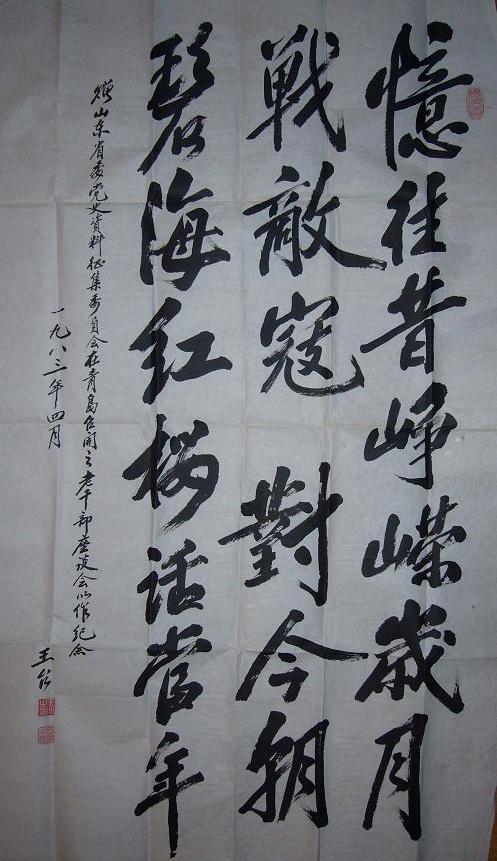 憶往昔崢嶸歲月
戰敵寇對今朝
碧海红楼話當年
贈山东省委党史資料征集委員会在青島召開之老干部座谈会以作纪念
一九八三年四月
王